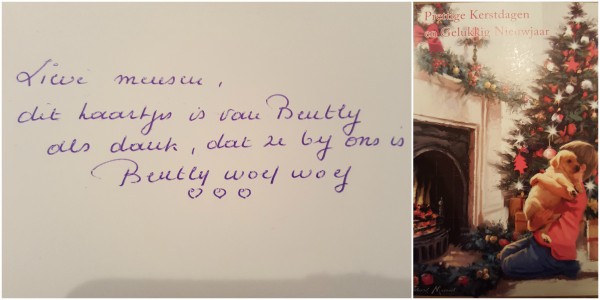 Lieve mensen,
dit kaartje is van Bently
als dank, dat ze by ons is
Bently woef woef
♡♡♡
Prettige Kerstdagen
en Gelukkig Nieuwjaar